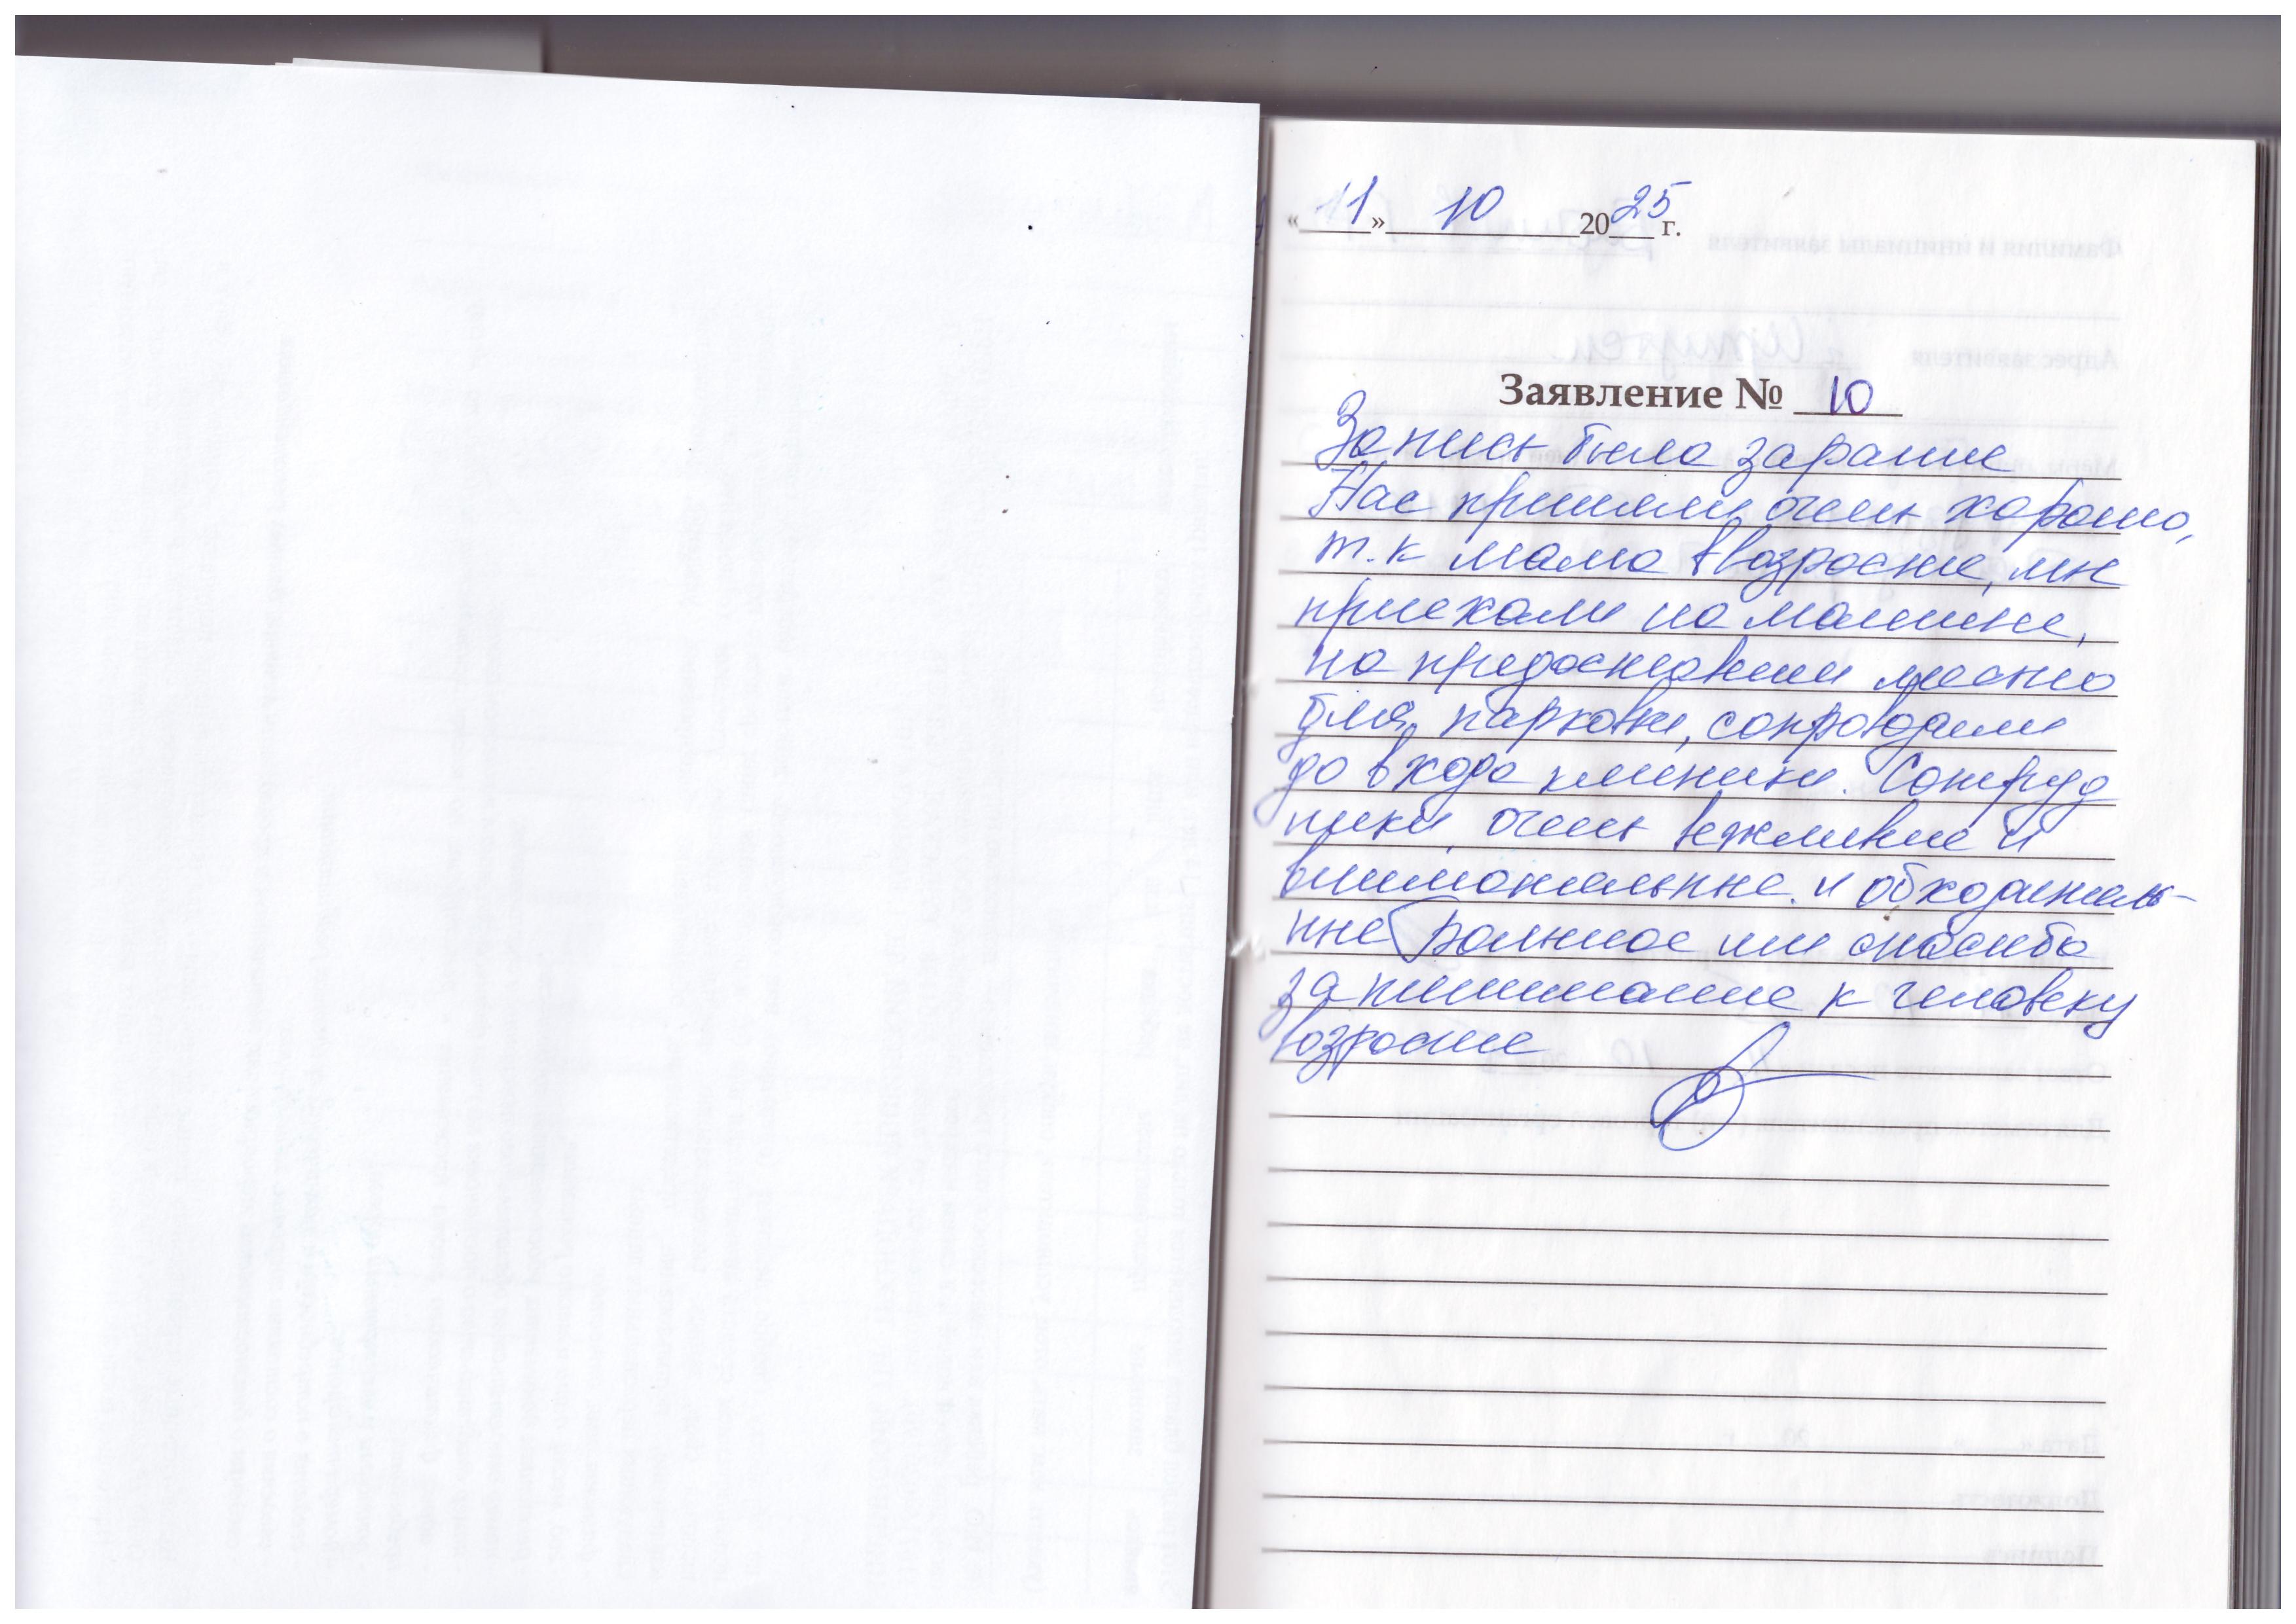 «11» 10 2025 г.
Заявление № 10
Запись была зарание
Нас приняли очень хорошо,
т.к мама в возрасте, мы
приехали на машине,
на предоставили место
для парковки, сопроводили
до входа клиники. Сотруд
ники очень вежливые и
внимательные и обходитель-
ные Большое им спасибо
за понимание к человеку
возрасте